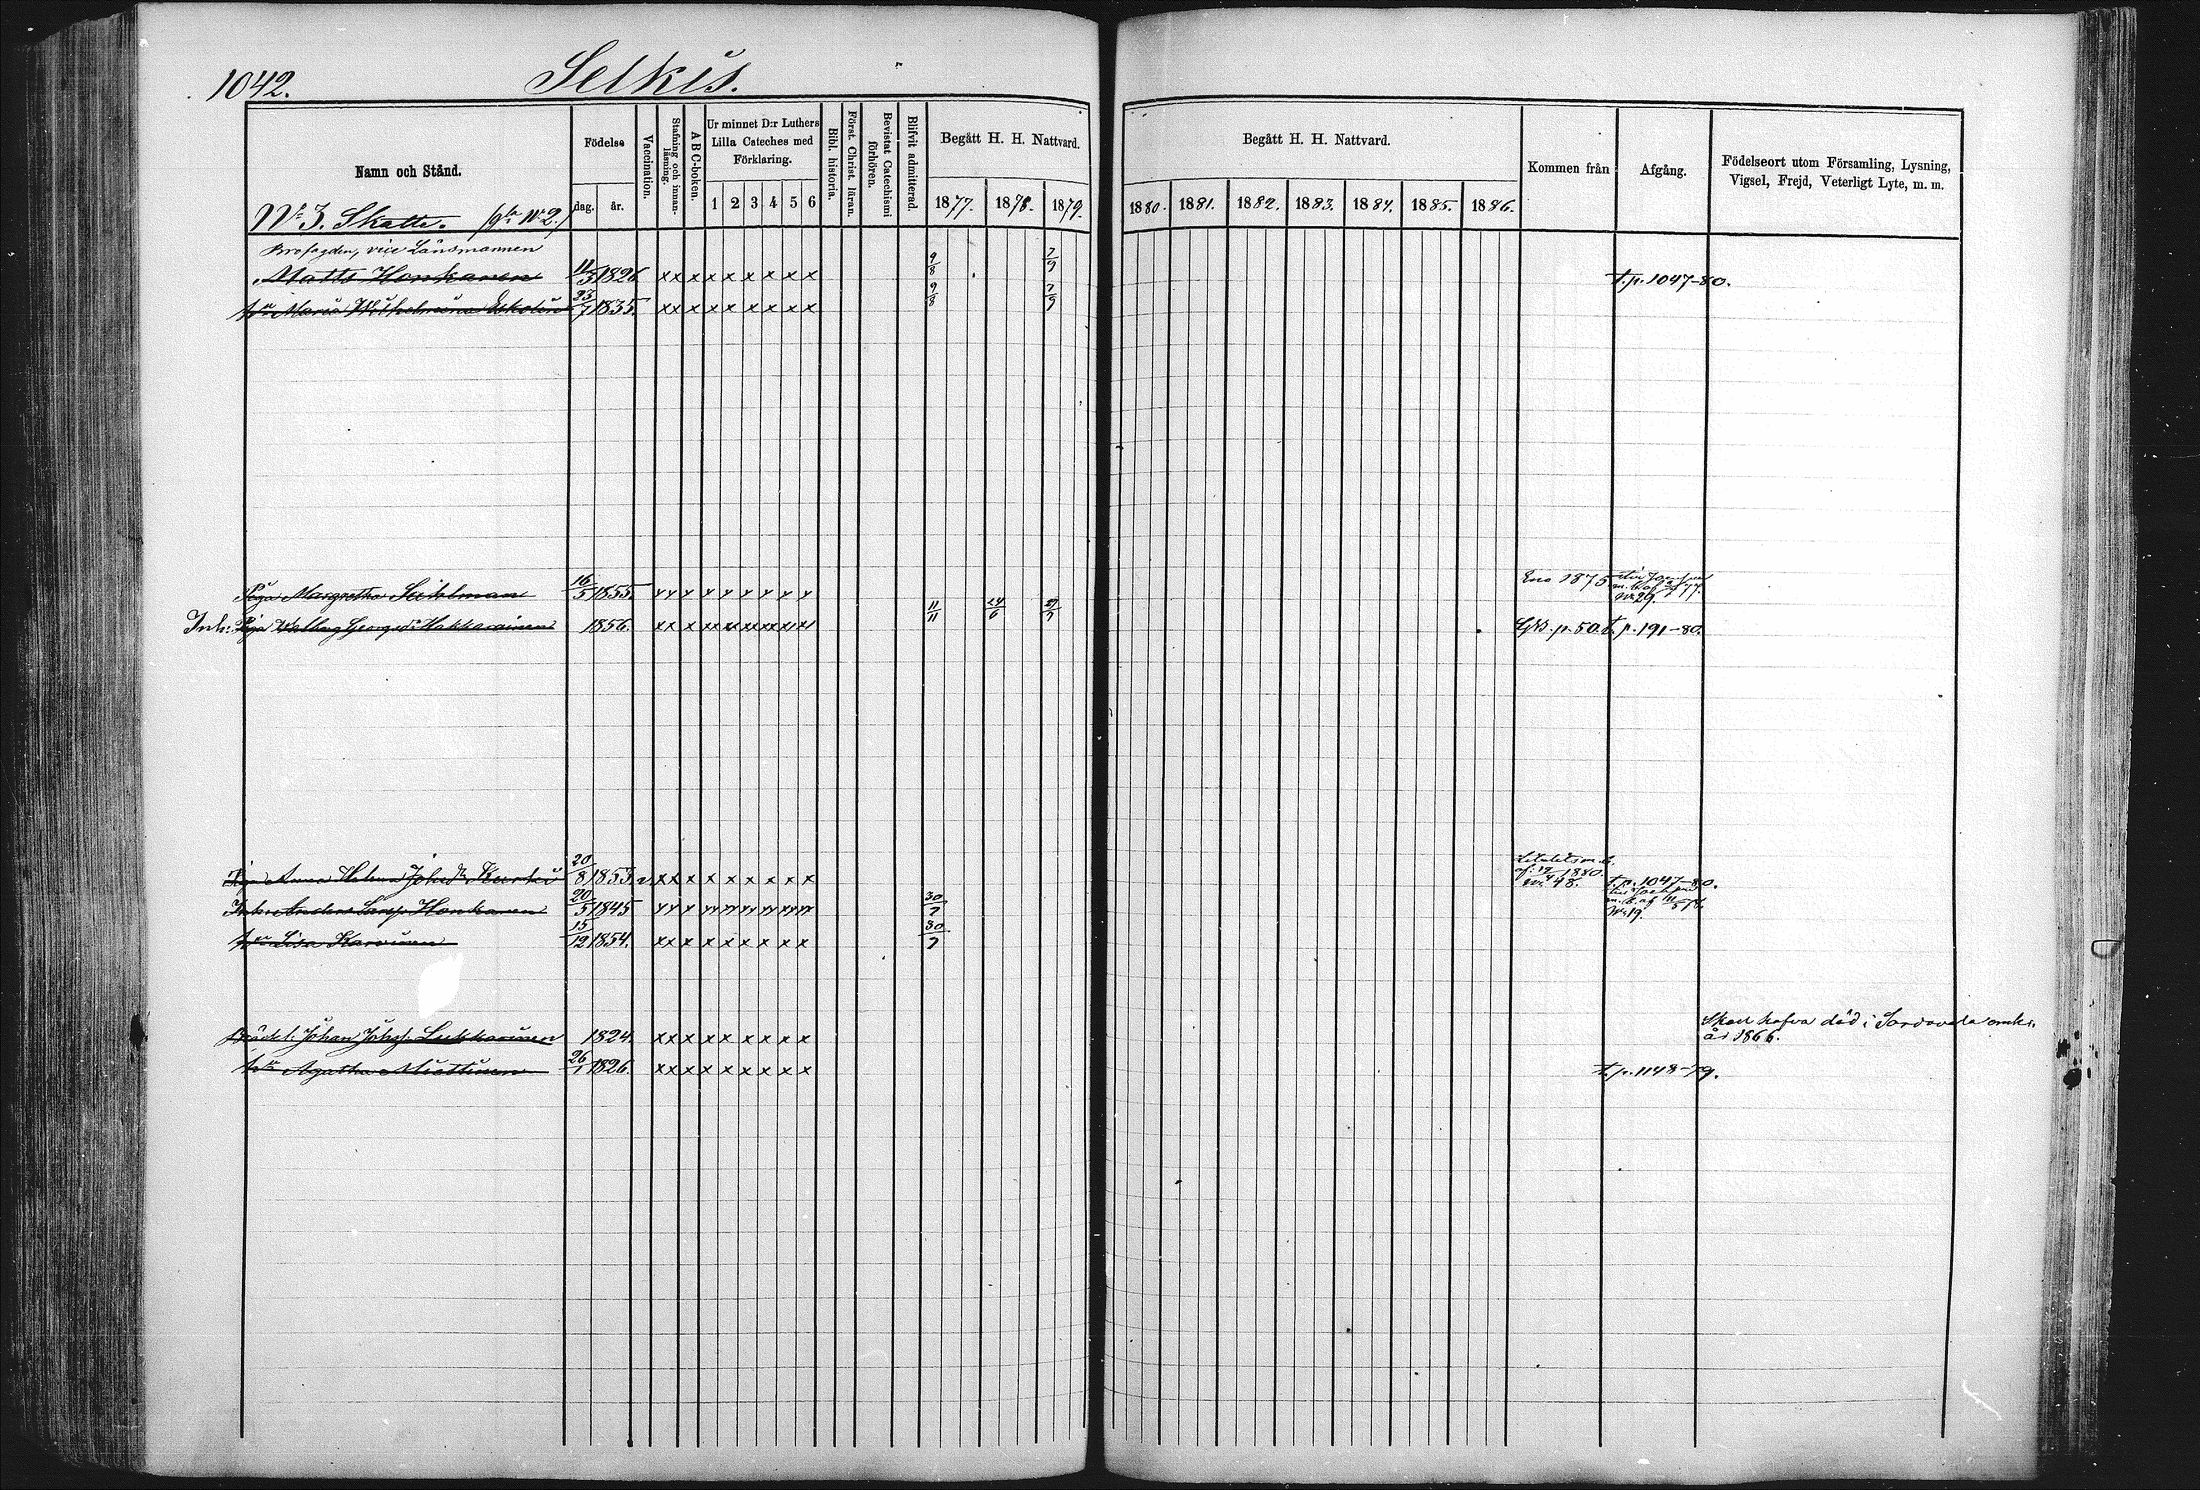 1042.
Selkis.
Namn och Stånd.
Födelse
dag.
år.
Vaccination.
Stafning och innan-
läsning.
ABC-boken.
Ur minnet D:r Luthers
Lilla Cateches med
Förklaring.
1 2 3 4 5 6
Bibl. historia.
Först. Christ. läran.
Bevistat Catechismi
förhören.
Blifvit admitterad.
Begått H. H. Nattvard.
1877. 1878. 1879.
Begått H. H. Nattvard.
1880. 1881. 1882. 1883. 1884. 1885. 1886.
Kommen från
Afgång.
Födelseort utom Församling, Lysning,
Vigsel, Frejd, Veterligt Lyte, m. m.
No 3. Skatte.
vice Länsmannen
Matts Honkanen 11/3 1826 x x x x x x x x x 9/8 7/9 t.p. 1047-80.
hu Maria Wilhelmina 23/7 1835. x x x x x x x x x 9/8 7/9
Piga Margretha Sahlman 16/5 1855. x x x x x x x x x Eno 1875
No 29.
Inh: Piga Walborg Georgsdr Hakkarainen 1856. x x x xx xx xx xx xx xx 11/11 24/6 p. 50. t.p. 191-80.
Piga Anna Helena Johsdr 20/8 1853. v x x x x x x x x x
af 1880.
No 48. t.p. 1047-80.
Anders Larss. Honkanen 20/5 1845 30/7
No 19.
hu Lisa Karvinen 15/12 1854. x x x x x x x x x 30/7
Johan Johss. Lukkarinen 1824. x x x x x x x x x Skall hafva död i Sordavala omkr.
år 1866.
hu Agatha Miettinen 26/1 1826. x x x x x x x x x t.p. 1148-79.